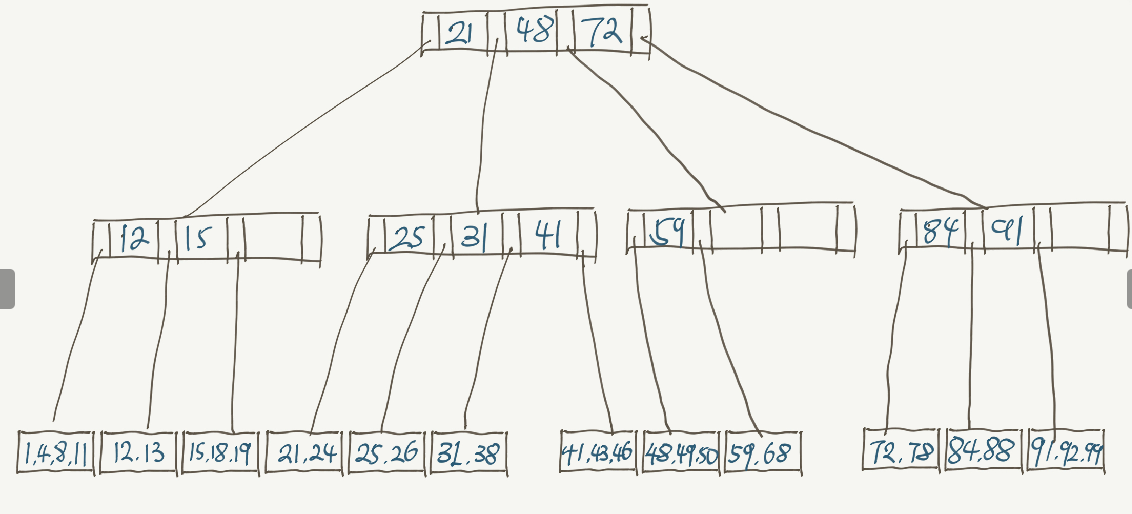 21 48 72
12 15 25 31 41 59 84 91
1,4,8,11 12.13 15.18.19 21,24 25.26 31.38 41,43,46 48,49,50 59,68 72,78 84.88 91.92.99